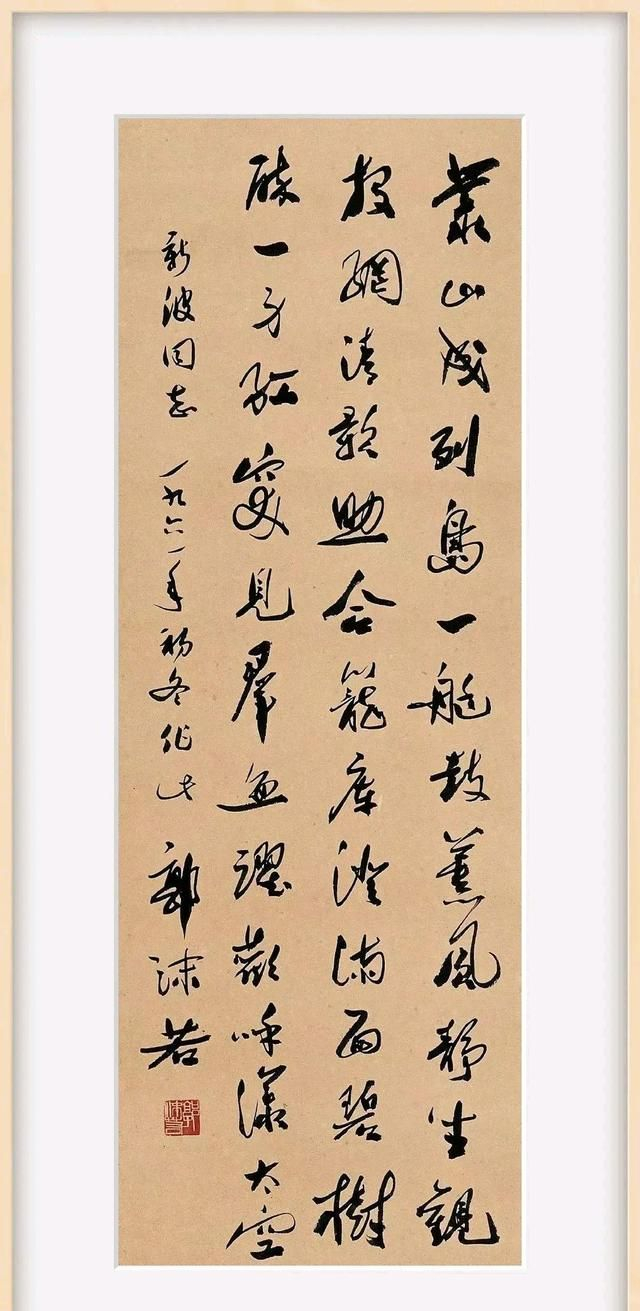 叢山成列島一艇鼓薰風靜坐觀
投網清歌助合籠庫澄滿面碧樹
醉一方紅突見羣魚躍歡呼漾太空
新波同志 一九六一年初冬作此 郭沫若
郭沫若